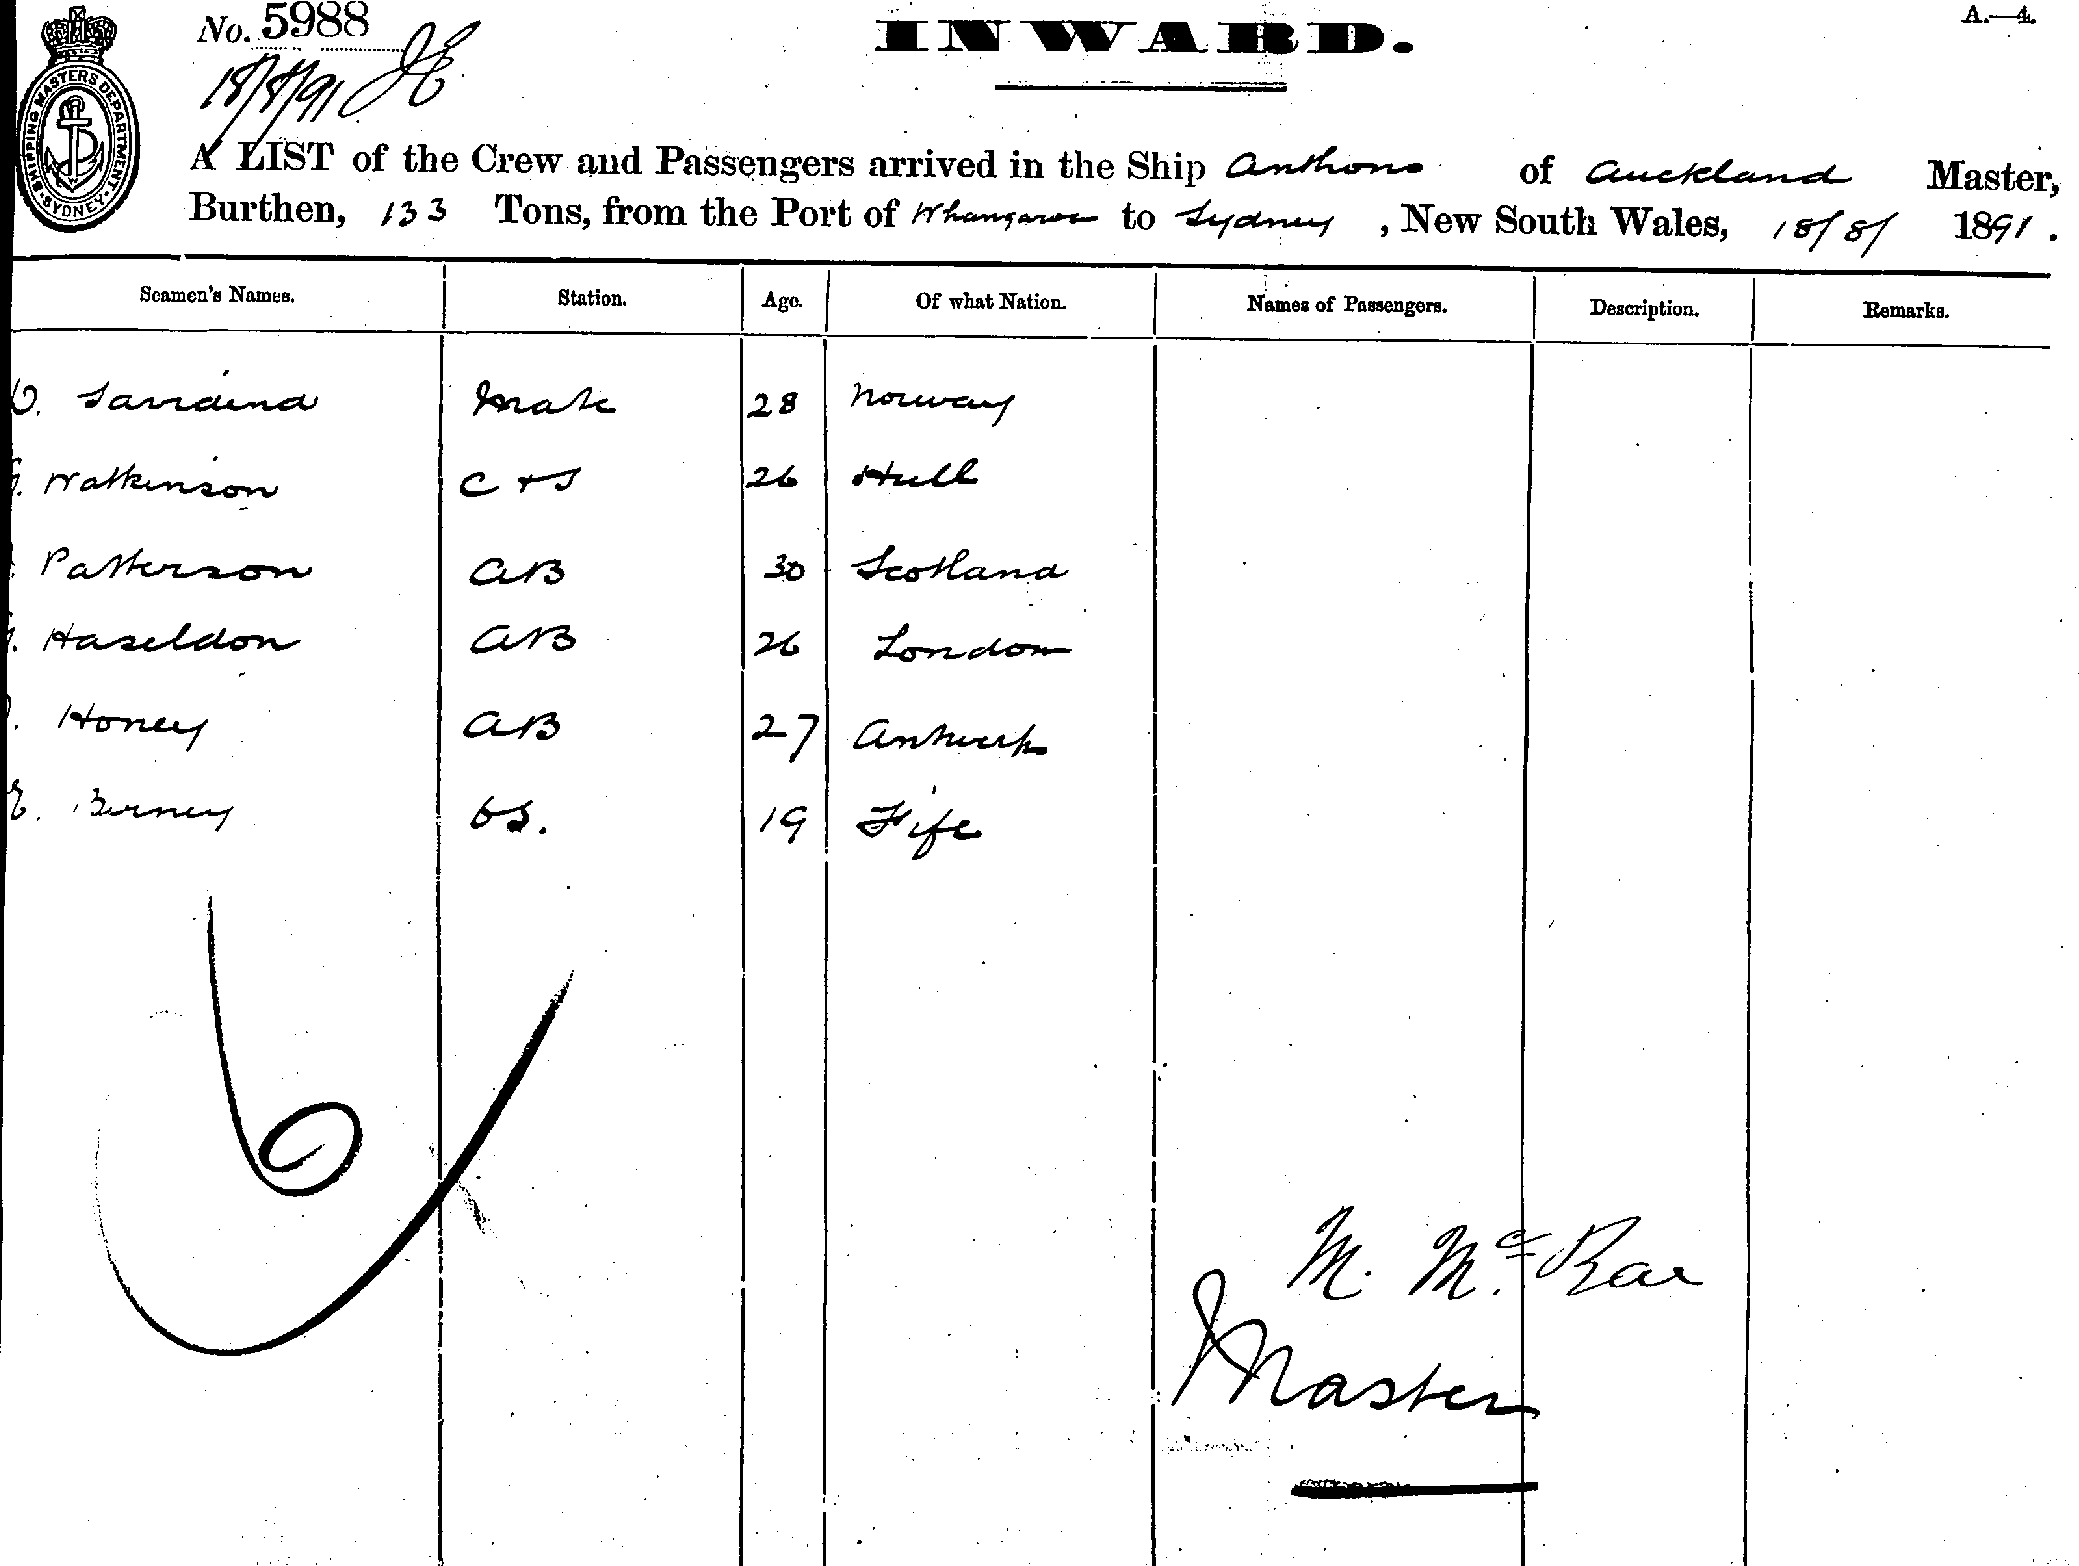 No. 5988
A.—4.
INWARD.
18/8/91 JE
SHIPPING MASTERS DEPARTMENT. SYDNEY.
A LIST of the Crew and Passengers arrived in the Ship of Auckland Master,
Burthen, 133 Tons, from the Port of to Sydney, New South Wales, 18/8/ 1891.
Seamen's Names. Station. Age. Of what Nation. Names of Passengers. Description. Remarks.
Mate 28 Norway
Watkinson C & S 26 Hull
Patterson AB 30 Scotland
Haseldon AB 26 London
Honey AB 27 Antwerp
E. Berney OS. 19 Fife
6
M. McRae
Master